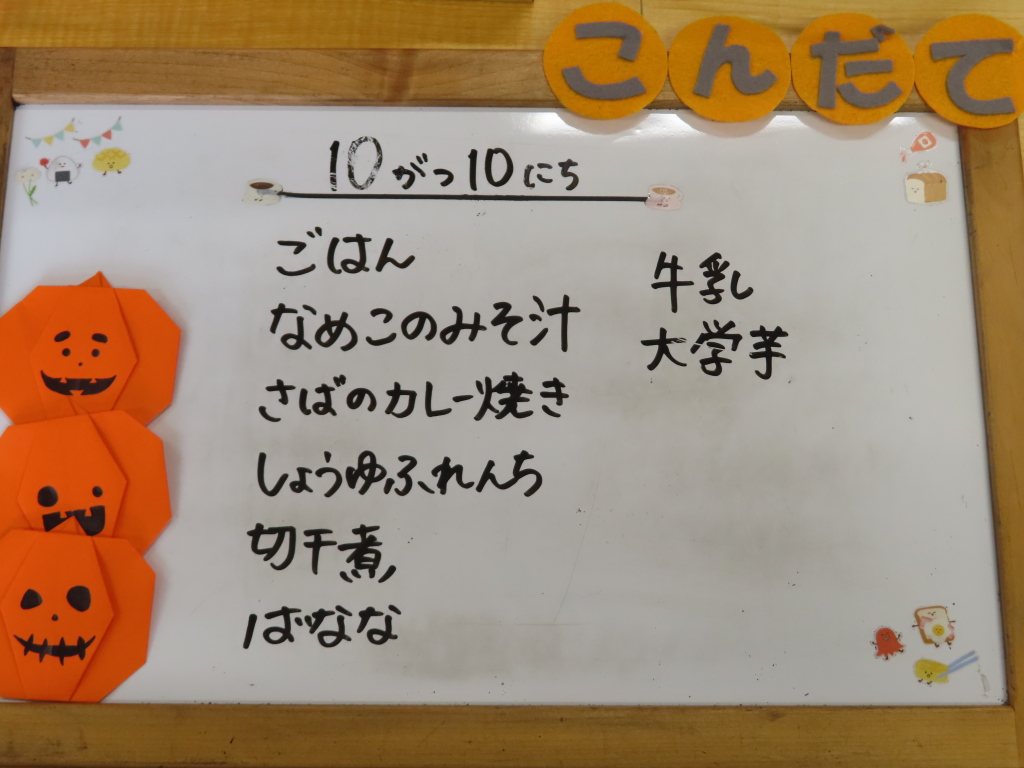 こんだて
10がつ10にち
ごはん
なめこのみそ汁
さばのカレー焼き
しょうゆふれんち
切干煮
ばなな
牛乳
大学芋